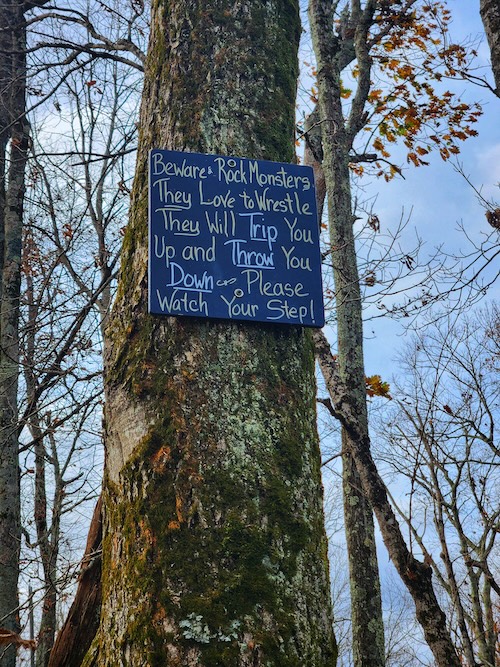 Beware Rock Monsters
They Love to Wrestle
They Will Trip You
Up and Throw You
Down Please
Watch Your Step!